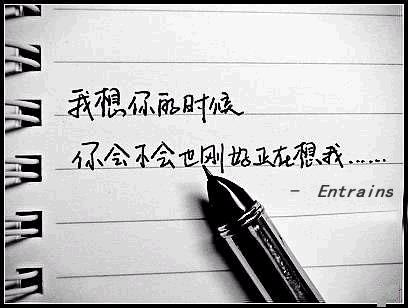 我想你的时候
你会不会也刚好正在想我……
- Entrains